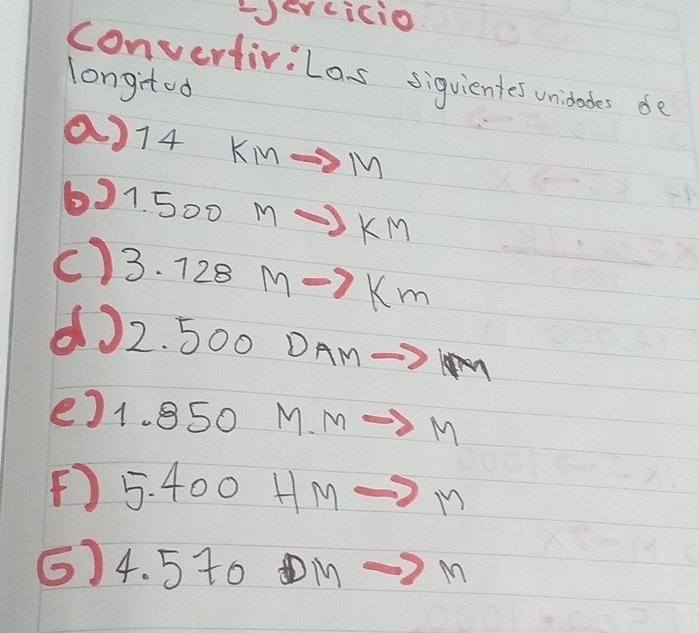 Ejercicio
Convertir: Las siguientes unidades de
longitud
a) 14 KM → M
b) 1.500 M → KM
c) 3.128 M → Km
d) 2.500 DAM → m
e) 1.850 M.M → M
F) 5.400 HM → m
G) 4.570 DM → m